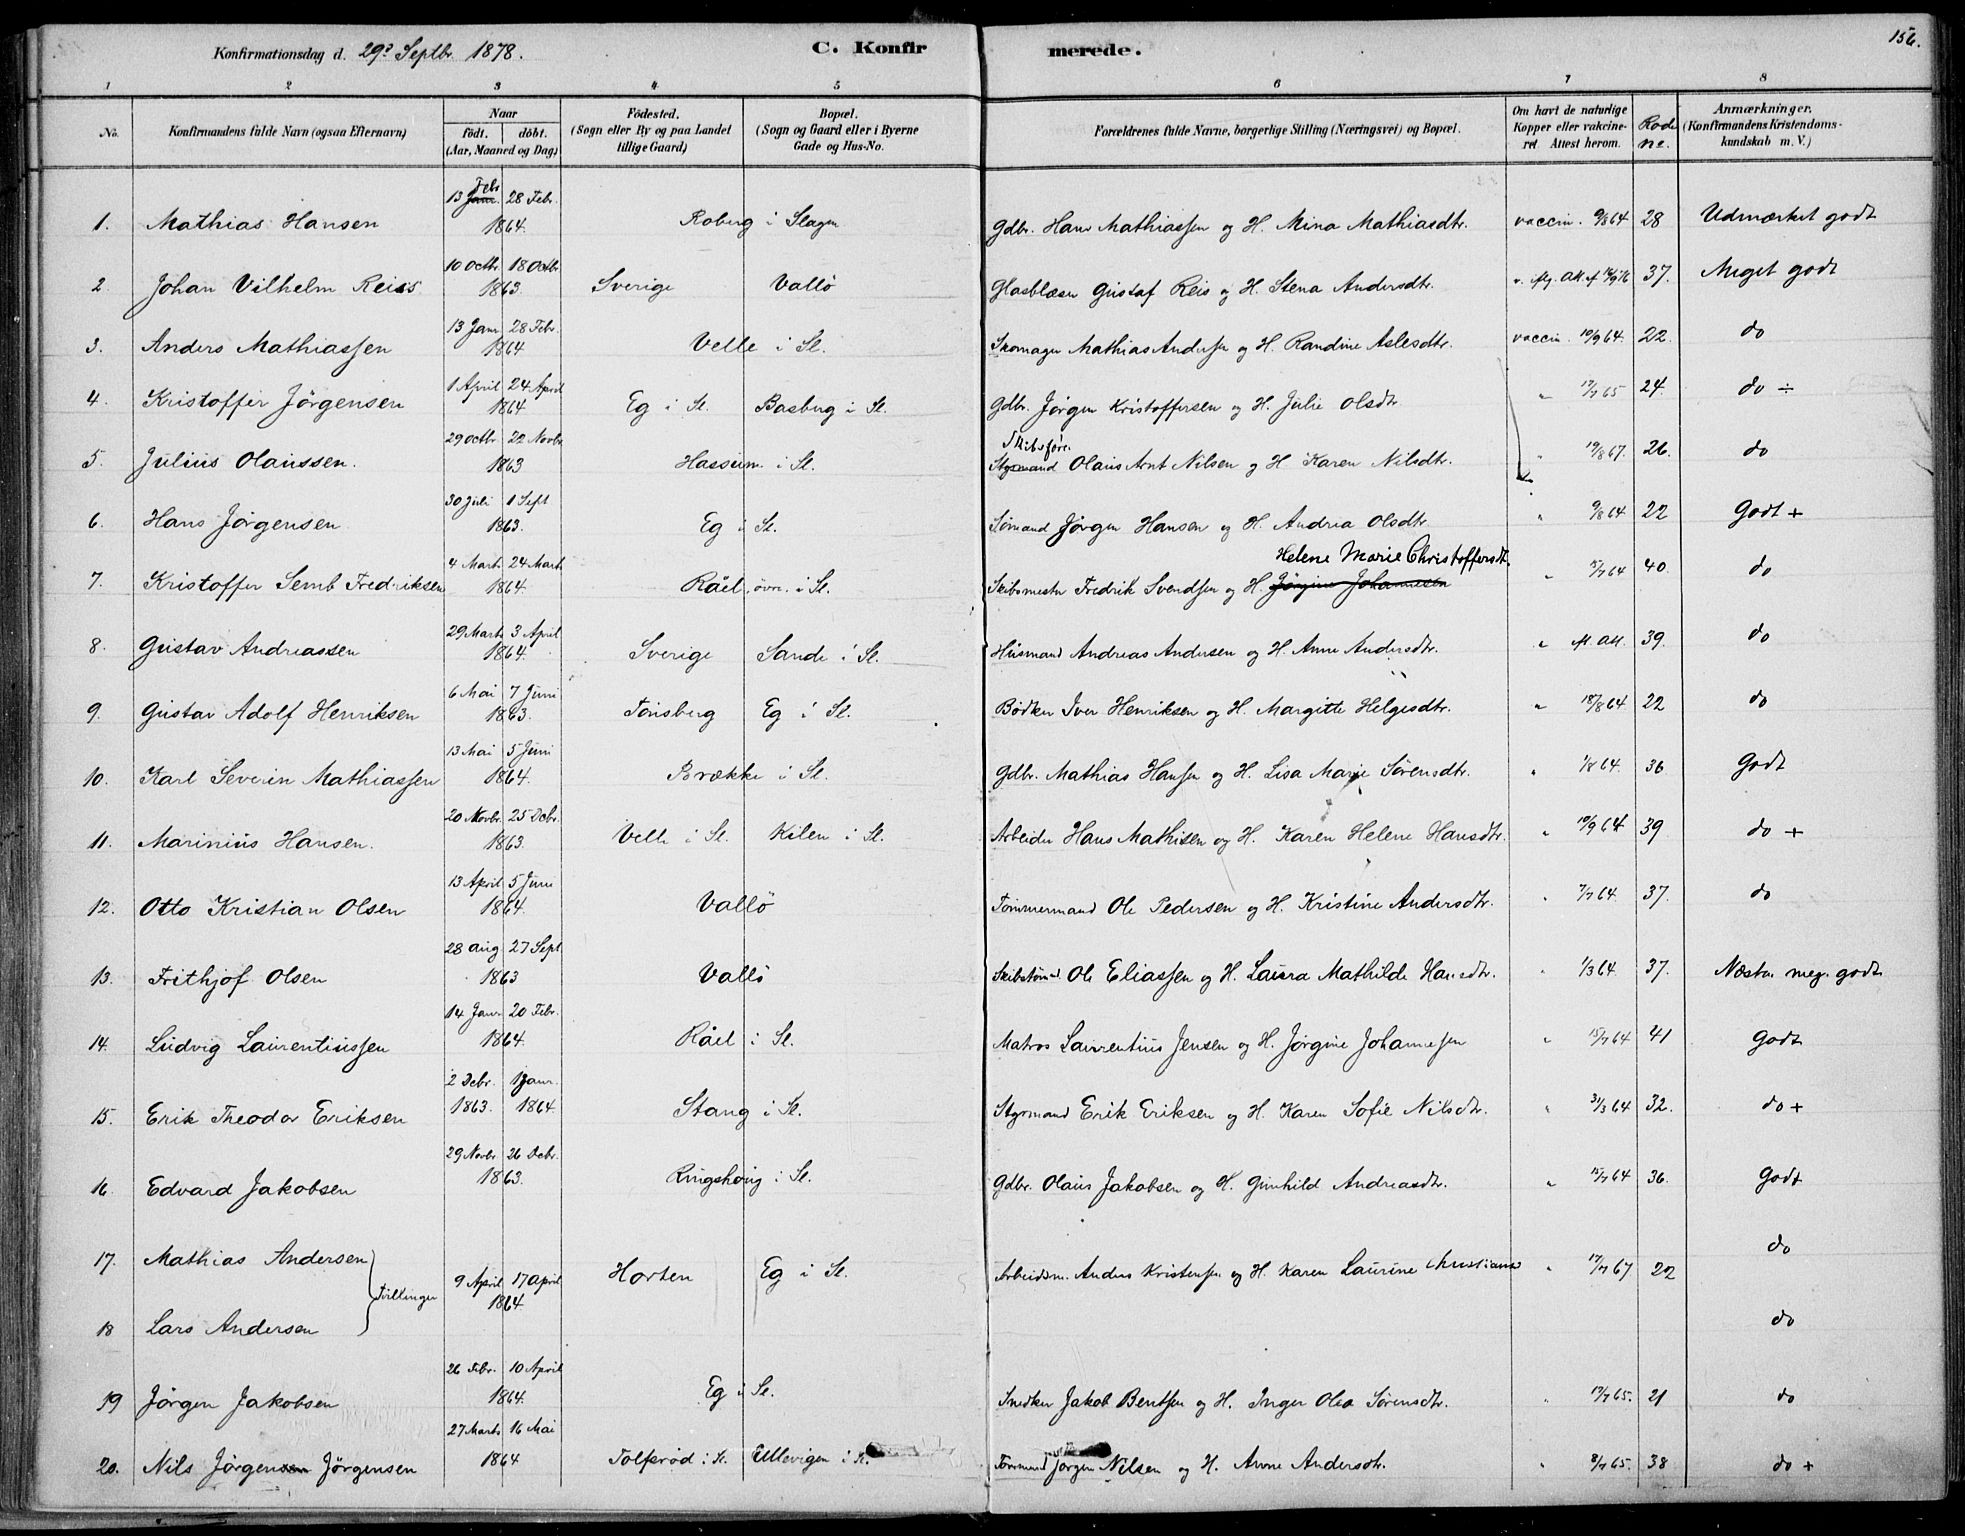 Konfirmationsdag d. 29de Septbr 1878. C. Konfirmerede. 156.
1 2 3 4 5 6 7 8
No. Konfirmandens fulde Navn (ogsaa Efternavn) Naar født. døbt. (Aar, Maaned og Dag) Fødested. (Sogn eller By og paa Landet tillige Gaard) Bopæl. (Sogn og Gaard eller i Byerne Gade og Hus-No. Forældrenes fulde Navne, borgerlige Stilling (Næringsvei) og Bopæl. Om havt de naturlige Kopper eller vakcineret. Attest herom. Rode ne. Anmærkninger. (Konfirmandens Kristendomskundskab m. V.)
1. Mathias Hansen 13 Febr 28 Febr. 1864. Roberg i Slagen Gdbr. Hans Mathiassen og H. Mina Mathiasdtr. vaccin. 9/8 64 28 Udmærket godt
2 Johan Vilhelm Reiss 10 Octbr. 18 Octbr. 1863. Sverige Vallö Glasblæser Gustaf Reis og H. Stena Andersdtr. 37. Meget godt
3. Anders Mathiassen 13 Janr 28 Febr. 1864 Velle i Sl. Skomager Mathias Andersen og H. Randine Aslesdtr. vaccin. 10/9 64. 22. do
4. Kristoffer Jörgensen 1 April 24 April 1864 Eg i Sl. Basberg i Sl. Gdbr. Jörgen Kristoffersen og H. Julie Olsdtr " 17/7 65 24. do ÷
5. Julius Olaussen. 29 Octbr. 22 Novbr. 1863 Hassum i Sl. Skibsför. Styrmand Olaus Arnt Nilsen og H Karen Nilsdtr. " 19/8 67. 26. do
6. Hans Jörgensen 30 Juli 1 Sept 1863. Eg i Sl. Sömand Jörgen Hansen og H. Andrea Olsdtr. " 9/8 64 22 Godt +
7. Kristoffer Semb Fredriksen 4 Marts 24 Marts 1864 Råel, övre. i Sl. Skibsmester Fredrik Svendsen og H. Jörgine Johannesen Helene Marie Christoffersdt. " 5/7 64 40. do
8. Gustav Andreassen 29 Marts 3 April 1864. Sverige Sande i Sl. Husmand Andreas Andersen og H. Anne Andersdtr. " 39. do
9. Gustav Adolf Henriksen 6 Mai 7 Juni 1863. Tönsberg Eg i Sl. Bödker Iver Henriksen og H. Margitte Helgesdtr. " 18/8 64 22 do
10. Karl Severin Mathiassen 13 Mai 5 Juni 1864. Brække i Sl. Gdbr. Mathias Hansen og H. Lisa Marie Sörensdtr. " 1/8 64. 36 Godt
11. Marinius Hansen. 20 Novbr. 25 Debr. 1863. Velle i Sl. Kilen i Sl. Arbeider Hans Mathisen og H. Karen Helene Hansdtr. " 10/9 64 39 do +
12. Otto Kristian Olsen 13 April 5 Juni 1864. Vallö Tömmermand Ole Pedersen og H. Kristine Andersdtr. " 7/7 64. 37. do
13. Frithjof Olsen 28 Aug 27 Sept 1863 Vallö Skibstömd. Ole Eliassen og H. Laura Mathilde Hansdtr. " 1/3 64 37. Næsten meg. godt
14. Ludvig Laurentiussen 14 Janr 20 Febr. 1864. Råel i Sl. Matros Laurentius Jensen og H. Jörgine Johannesen " 15/7 64 41 Godt
15. Erik Theodor Eriksen 2 Debr. 1863. 1 Janr. 1864. Stang i Sl. Styrmand Erik Eriksen og H. Karen Sofie Nilsdtr. " 31/3 64 32. do +
16. Edvard Jakobsen 29 Novbr 26 Debr. 1863. Ringshoug i Sl. Gdbr. Olaus Jakobsen og H. Gunhild Andreasdtr. " 15/7 64 36. Godt
17. Mathias Andersen Tvillinger 9 April 17 April 1864. Horten Eg i Sl. Arbeidsm. Anders Kristensen og H. Karen Laurine Christians " 17/7 67 22 do
18 Lars Andersen do
19 Jörgen Jakobsen 26 Febr. 10 April 1864. Eg i Sl. Snedker Jakob Bentsen og H. Inger Olea Sörensdtr. " 17/7 65. 21 do
20. Nils Jörgensen Jörgensen 27 Marts 16 Mai 1864 Tolfsröd i Sl. Ullevigen i Sl. Tömmermand Jörgen Nilsen og H. Anne Andersdtr. " 8/7 65. 38 do +